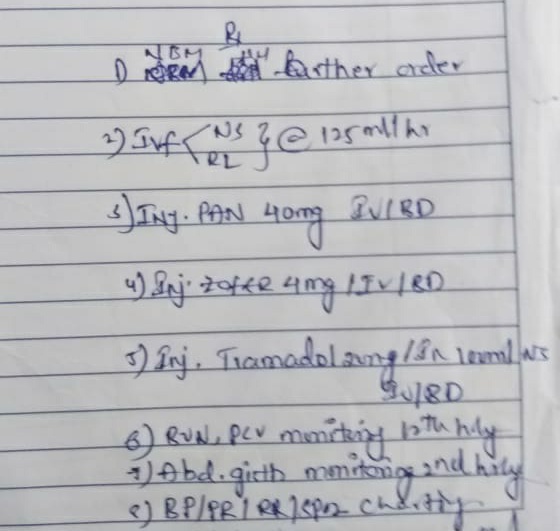 Rx
1) NBM till further order
2) Ivf < NS RL } @ 125 ml/hr
3) Inj. PAN 40mg IV/BD
4) Inj. ZOFER 4mg / IV / BD
5) Inj. Tramadol /In 100ml NS
IV/BD
6) RUN, PCV monitoring 12th hrly
7) Abd. girth monitoring 2nd hrly
8) BP/PR/RR/SPO2 charting